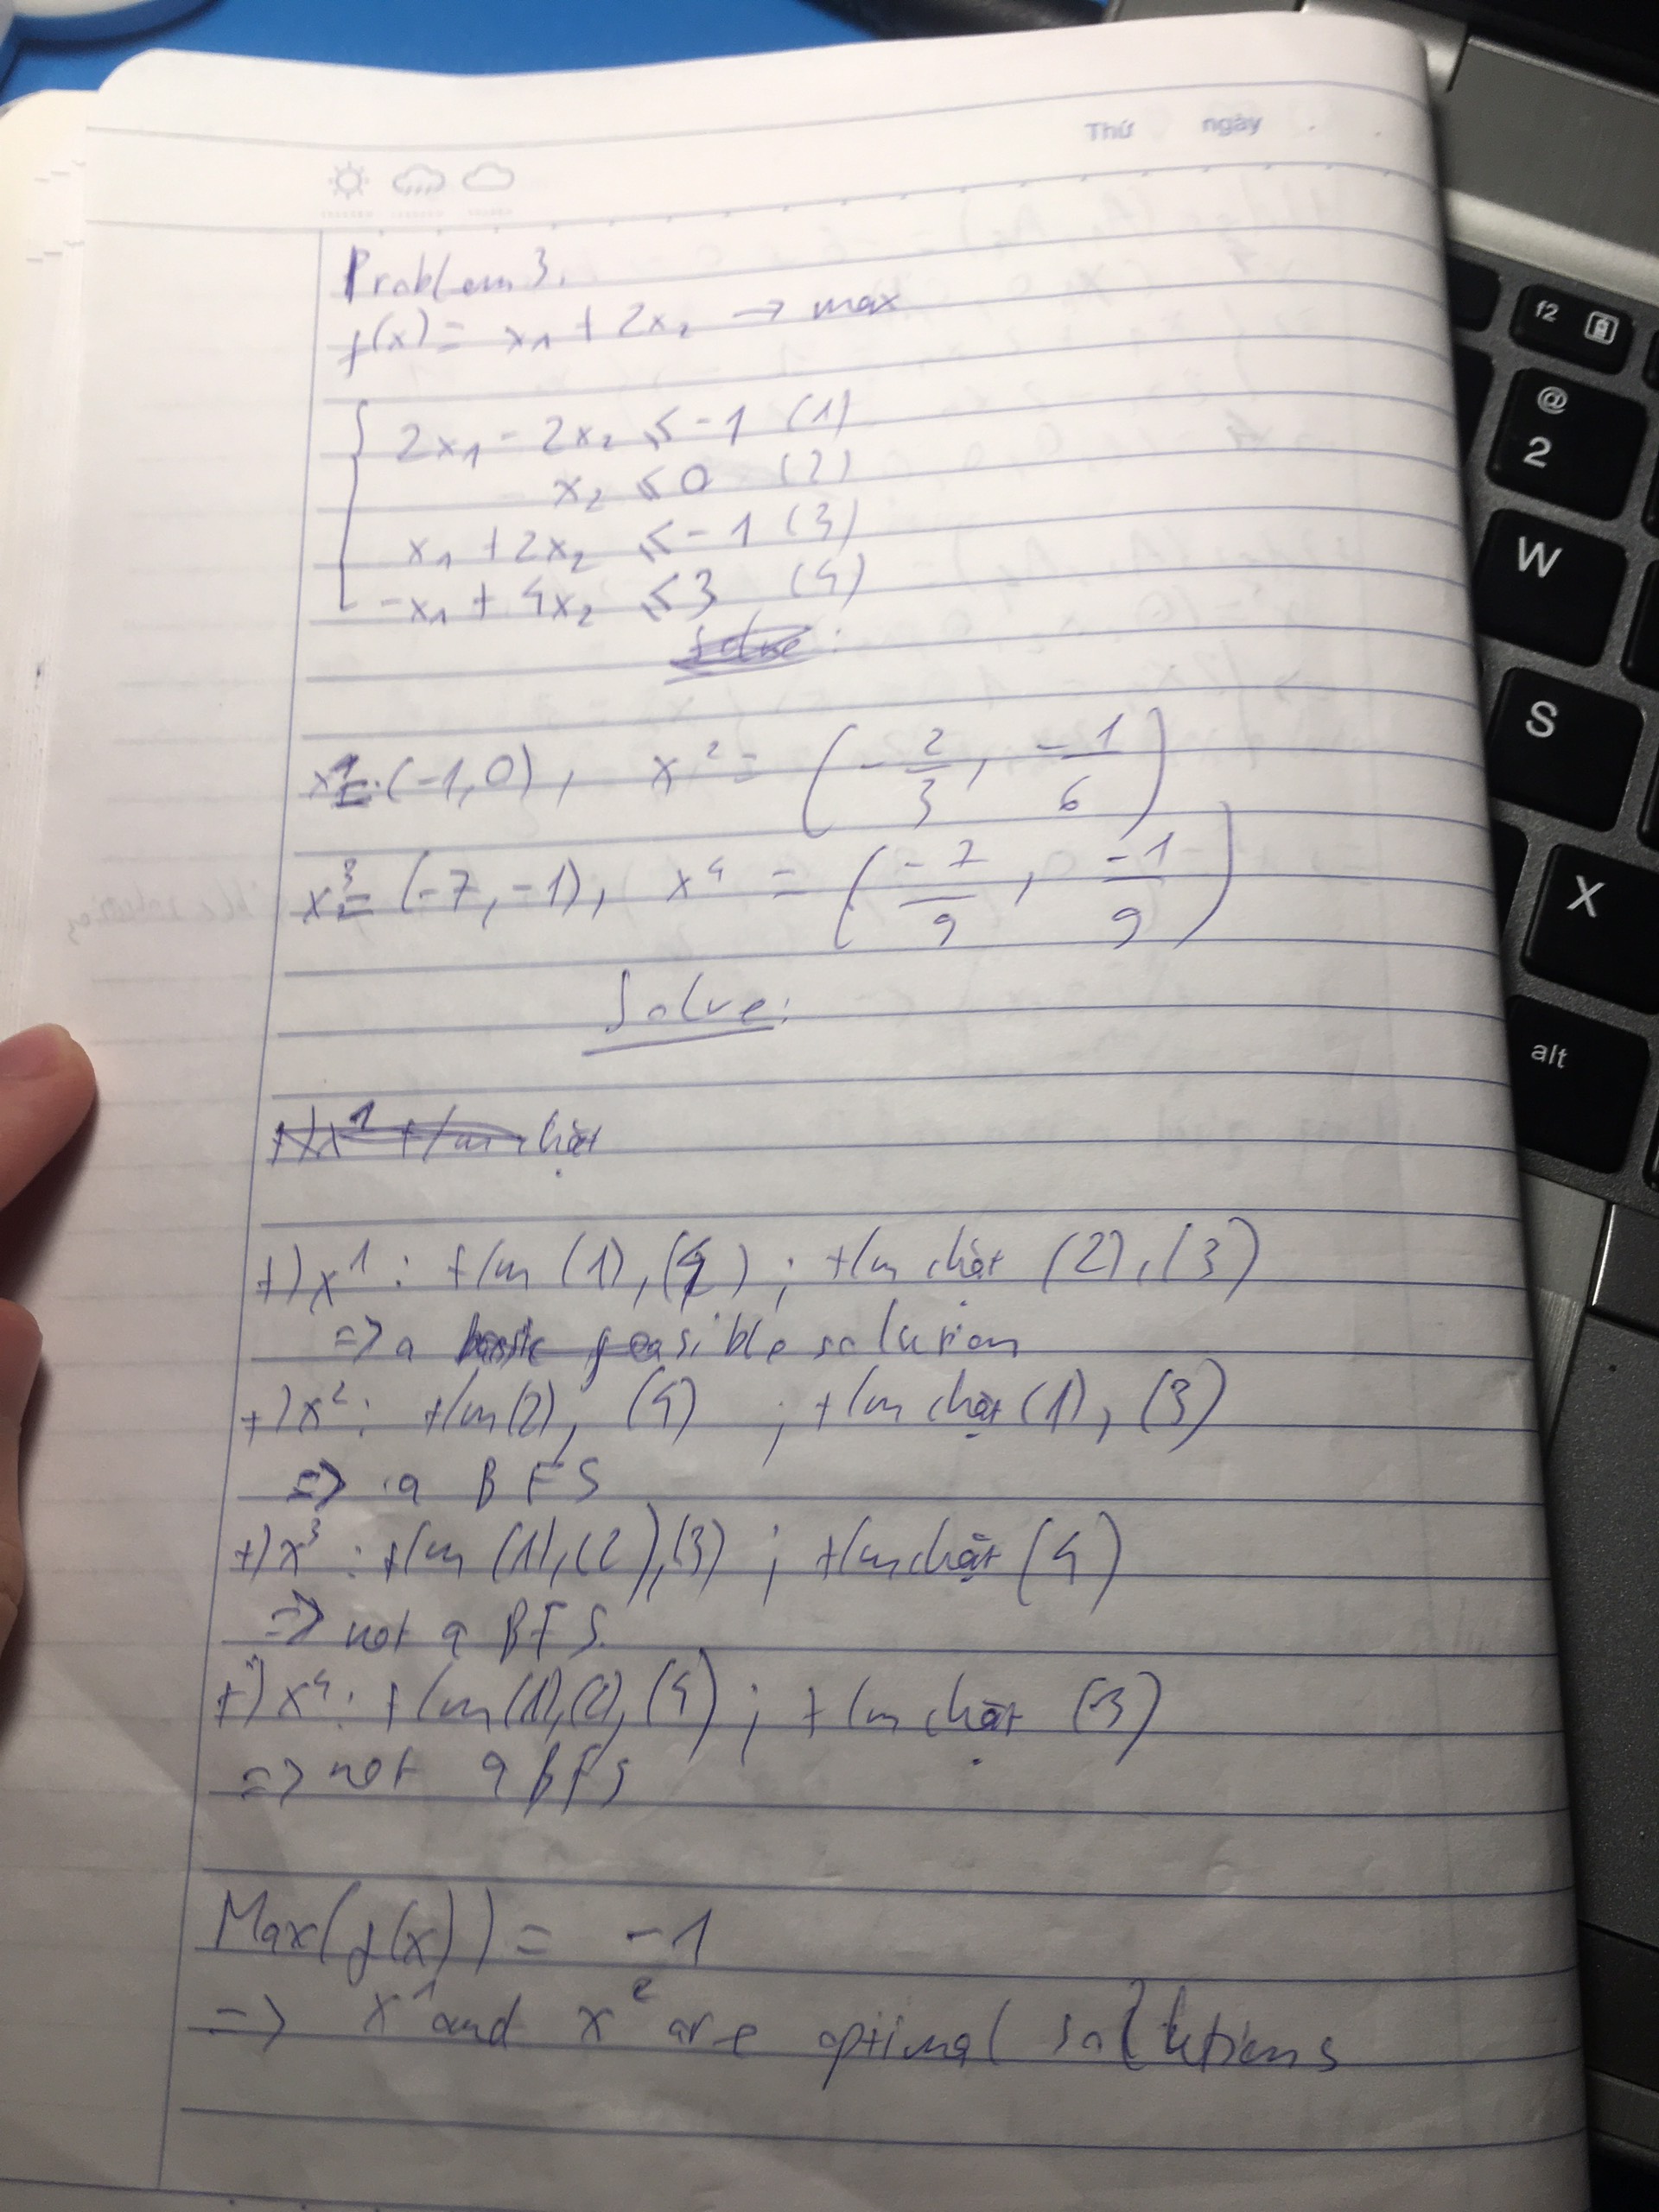 Thứ ngày
Problem 3.
f(x) = x₁ + 2x₂ → max
2x₁ - 2x₂ ≤ -1 (1)
x₂ ≤ 0 (2)
x₁ + 2x₂ ≤ -1 (3)
-x₁ + 4x₂ ≤ 3 (4)
x¹ = (-1, 0), x² = (-2/3, -1/6)
x³ = (-7, -1), x⁴ = (-7/9, -1/9)
Solve:
+) x¹ : t/m (1), (4) ; t/m chặt (2), (3)
=> a basic feasible solution
+) x² : t/m (2), (4) ; t/m chặt (1), (3)
=> a BFS
+) x³ : t/m (1), (2), (3) ; t/m chặt (4)
=> not a BFS.
+) x⁴ : t/m (1), (2), (4) ; t/m chặt (3)
=> not a BFS
Max(f(x)) = -1
=> x¹ and x² are optimal solutions
f2
@
2
W
S
X
alt